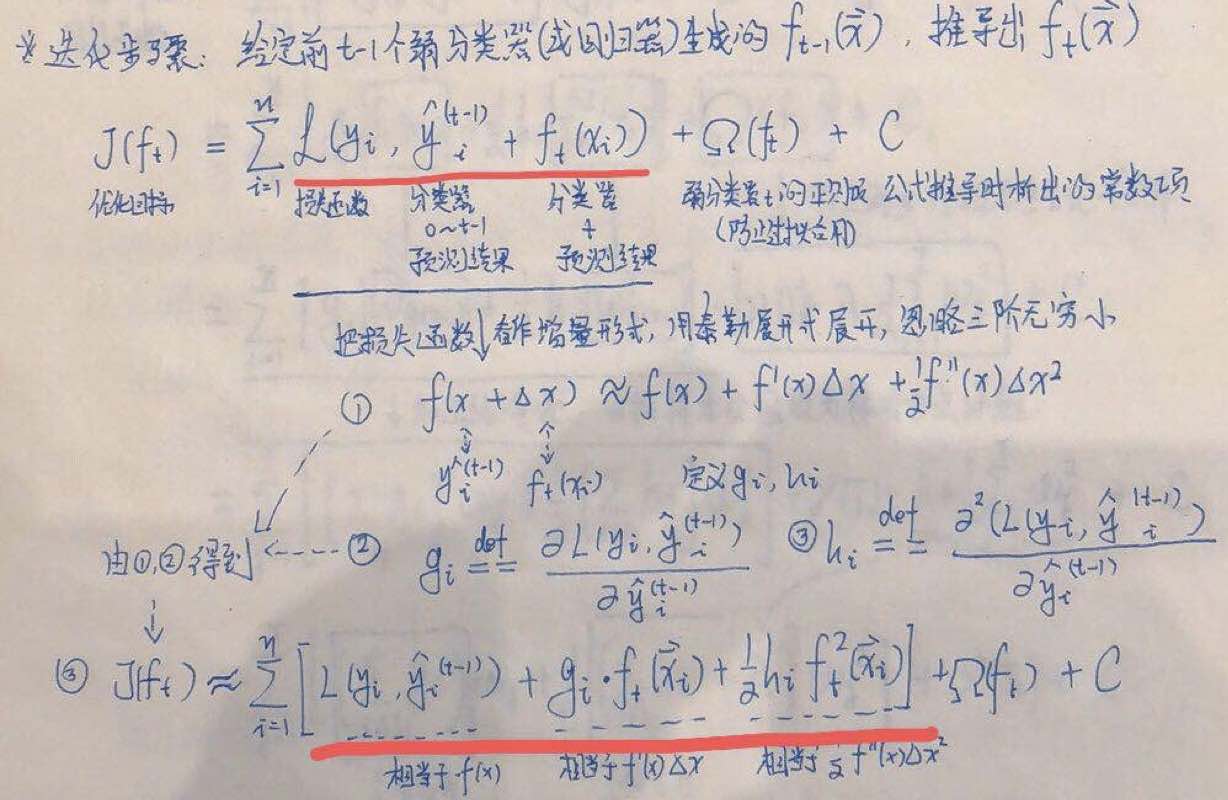 ※迭代步骤: 给定前t-1个弱分类器(或回归器)生成的 f_{t-1}(\vec{x}), 推导出 f_t(\vec{x})
J(f_t) = \sum_{i=1}^{n} L(y_i, \hat{y}_i^{(t-1)} + f_t(x_i)) + Ω(f_t) + C
优化目标 损失函数 分类器 0~t-1 预测结果 分类器 t 预测结果 弱分类器t的正则项 (防止过拟合用) 公式推导时析出的常数项
把损失函数看作增量形式, 用泰勒展开式展开, 忽略三阶无穷小
① f(x + Δx) ≈ f(x) + f'(x)Δx + \frac{1}{2}f''(x)Δx^2
\hat{y}_i^{(t-1)} f_t(x_i) 定义g_i, h_i
由①,②得到 ② g_i \overset{def}{==} \frac{∂L(y_i, \hat{y}_i^{(t-1)})}{∂\hat{y}_i^{(t-1)}} ③ h_i \overset{def}{==} \frac{∂^2(L(y_i, \hat{y}_i^{(t-1)})}{∂\hat{y}_i^{(t-1)}}
③ J(f_t) ≈ \sum_{i=1}^{n} [L(y_i, \hat{y}_i^{(t-1)}) + g_i·f_t(\vec{x}_i) + \frac{1}{2}h_i f_t^2(\vec{x}_i)] + Ω(f_t) + C
相当于 f(x) 相当于 f'(x)Δx 相当于 \frac{1}{2} f''(x)Δx^2